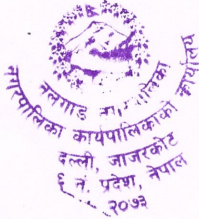 नलगाड न
नगरपालिका कार्यपालिकाको कार्यालय
दल्ली, जाजरकोट
६ नं. प्रदेश, नेपाल
२०७३